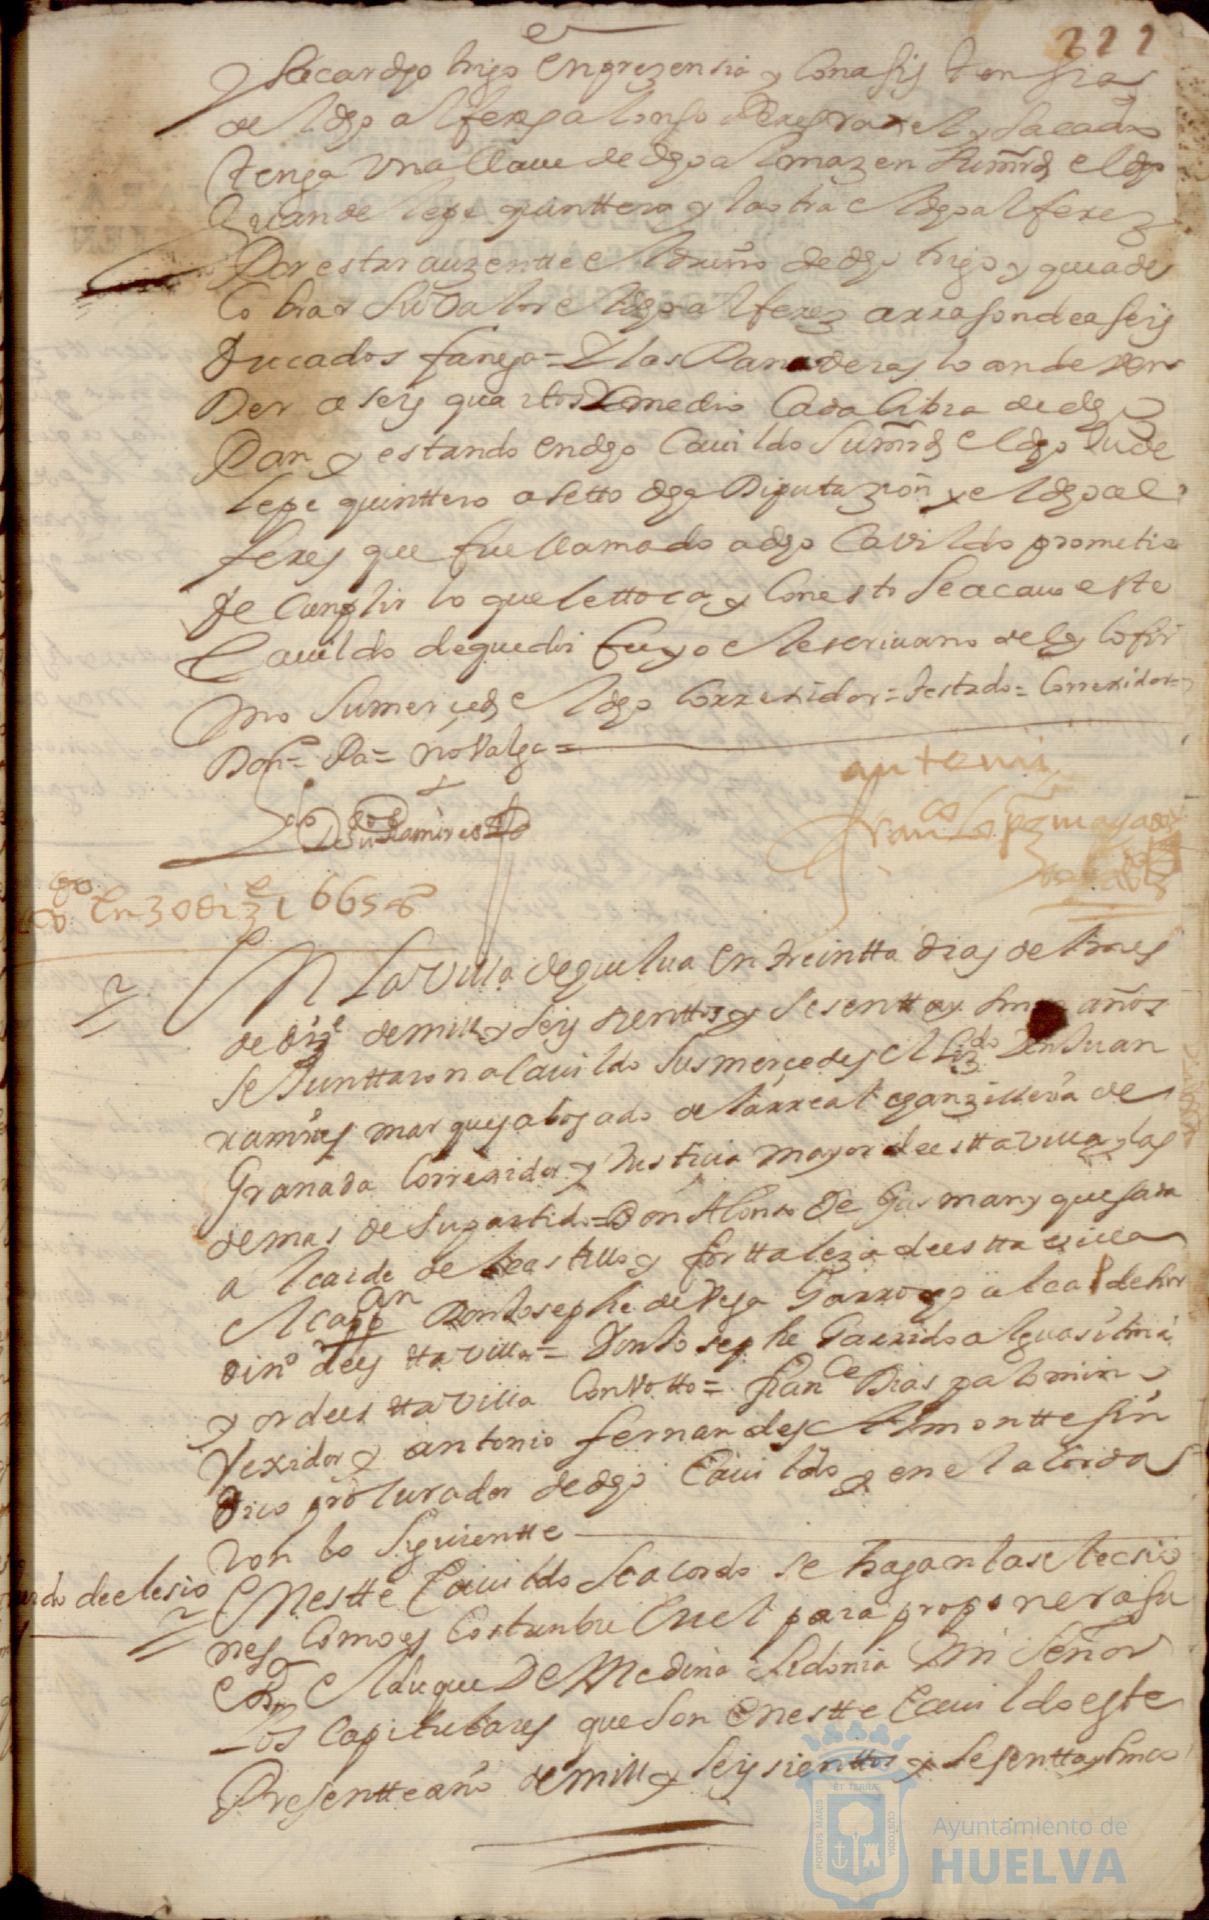 222
y sacar dho trigo en prezensia y Con asistensia
de el dho alferes alonso y sacado
tenga Vna llaue de dho almazen Sumrd el dho
Juan de lepe quinttero y la otra el dho alferez
Por estar auzentte el dueño de dho trigo y que a de
Cobrar Su Valor el dho alferez a rrason de a seis
Ducados fanega = Y las Panaderas lo an de Ven
Der a seis quartos Y medio Cada libra de dho
Pan y estando en dho Cauildo Sumrd el dho Ju de
lepe quinttero asetto dha Diputazion y el dho al
feres que fue llamado a dho Cavildo prometio
de Cunplir lo que le ttoca y Con esto Se acauo este
Cauildo de que doi fee yo el escriuano de el y lo fir
mo Su merced el dho Correxidor = testado = Correxidor =
Don = Pa = no Valga =
Ldo Don Ju Ramires
ante mi
Franco Lopez
Cdo en 30 dize 1665
En La Villa de guelua En treintta dias del mes
de dize de mill y seis sienttos y sesentta y sinco años
se Junttaron a Cauildo Sus mercedes el Lizdo Don Juan
ramires marques abogado de la rreal chanzilleria de
Granada Correxidor y Justicia mayor de estta Villa y las
demas de Su partido = Don Alonso De Gusman y quesada
alcaide de el castillo y forttaleza de estta villa
el cappan Don Josephe de Vega Garrocho alcalde hor
dino de estta Villa = Don Josephe Garrido alguasil ma
yor de estta Villa Con Votto = Franco Dias palomino
rexidor y antonio fernandes de Almontte sin
dico procurador de dho Cauildo y en el acorda
ron lo Siguientte
acuerdo de elesio
En estte Cauildo Se acordo se hagan las elecsio
nes Como es Costunbre En el para proponer a Su
Exa el duque De Medina Sidonia mi Señor
los Capitulares que Son En estte Cauildo este
Presentte año de mill y seis sienttos y sesentta y sinco
ET TERRÆ
PORTUS MARIS
CUSTODIA
Ayuntamiento de
HUELVA